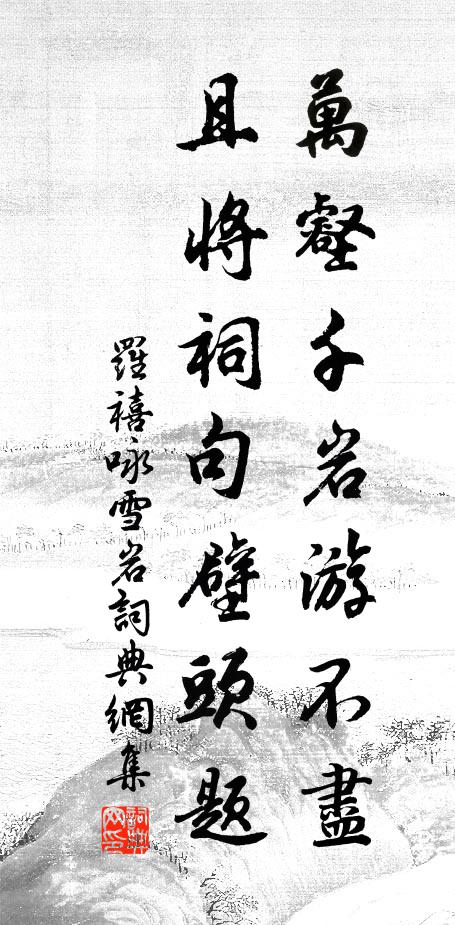 萬壑千岩游不盡
且將祠句壁頭題
羅禧咏雪岩詞典網集